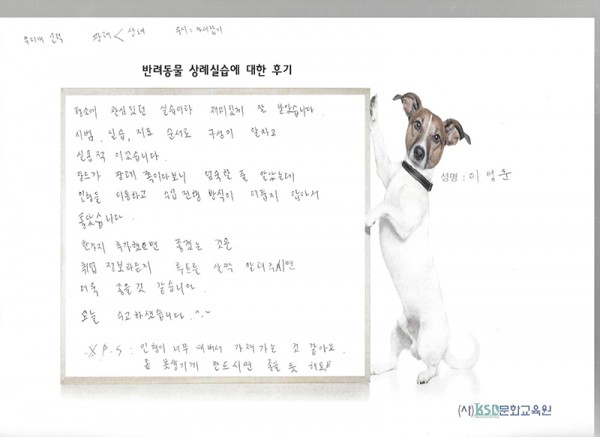 장례 < 상례
반려동물 상례실습에 대한 후기
평소에 관심있던 실습이라 재미있게 잘 들었습니다.
시범, 실습, 지도 순서로 구성이 알차고
실용적 이었습니다.
장례 쪽이다보니 엄숙할 줄 알았는데
인형을 이용하고 수업 진행 방식이 어둡지 않아서
좋았습니다.
한가지 추가했으면 좋겠는 것은
취업 정보라든지 루트를 살짝 알려주시면
더욱 좋을것 같습니다.
오늘 수고하셨습니다. ^.~
※ P.S : 인형이 너무 예뻐서 가져가는 것 같아요.
좀 못생기게 만드시면 좋을 듯 해요
성명 : 이병훈
(사)KSD문화교육원